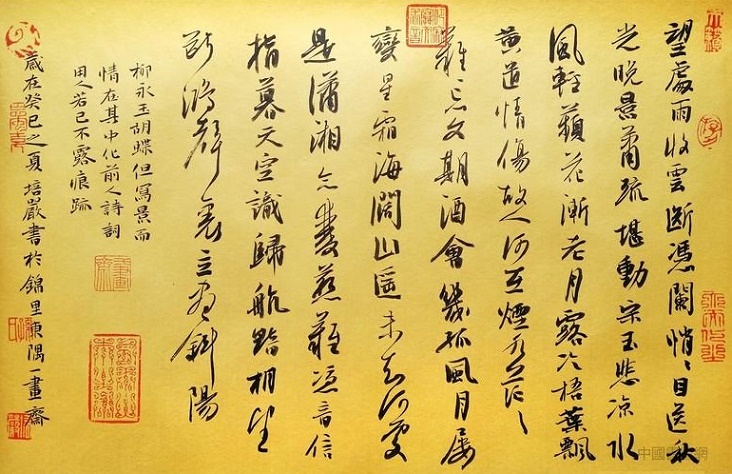 望處雨收雲斷憑闌悄〻目送秋
光晚景蕭疏堪動宋玉悲涼水
風輕蘋花漸老月露冷梧葉飄
黄遣情傷故人何在煙水茫〻
難忘文期酒會幾孤風月屢
變星霜海闊山遥未知何處
是瀟湘念雙燕難憑音信
指暮天空識歸航黯相望
斷鴻聲裏立盡斜陽
柳永玉胡蝶但寫景而
情在其中化前人詩詞
用之若己不露痕跡
歲在癸巳之夏培巖書於錦里東隅一畫齋